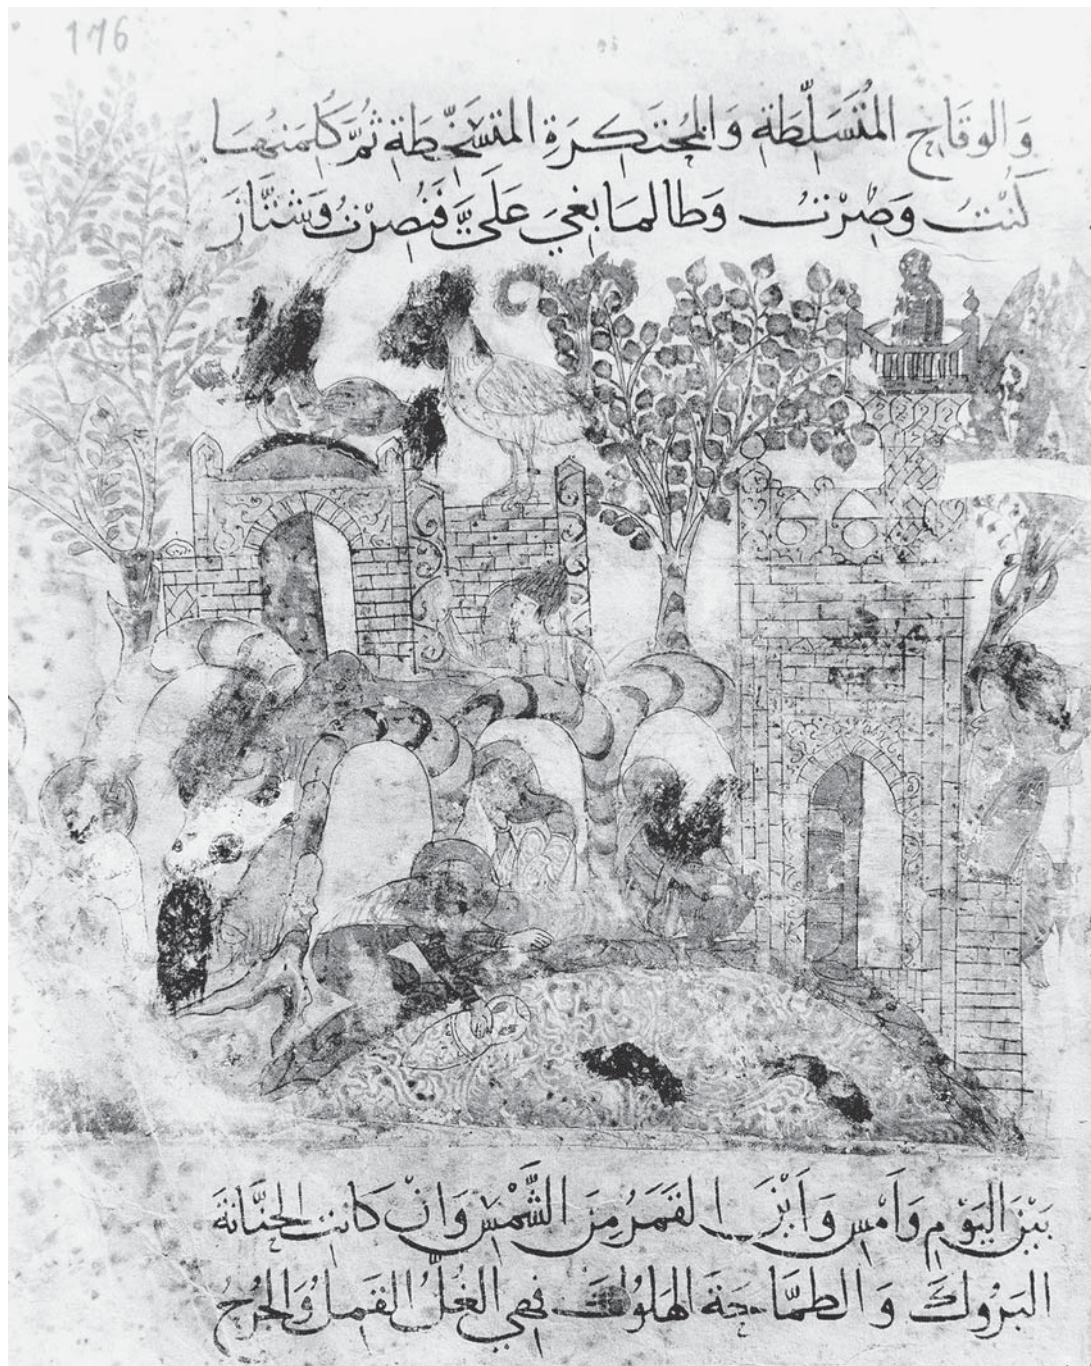 176
وَالوَقَاحِ المُتَسَلِّطَةِ وَالمُحْتَكِرَةِ المُتَسَخِّطَةِ ثُمَّ كَلِمَتُهَا
كُنْتُ وَصِرْتُ وَطالمَا بُغِيَ عَلَيَّ فَنُصِرْتُ وَشَتَّانَ
بَيْنَ اليَوْمِ وَأَمْسِ وَأَيْنَ القَمَرُ مِنَ الشَّمْسِ وَانْ كَانَتِ الحَنَّانَةَ
البَرُوكَ وَالطمَّاحَةَ الهَلُوكَ فهِيَ الغُلُّ القَمِلُ وَالجُرْحُ